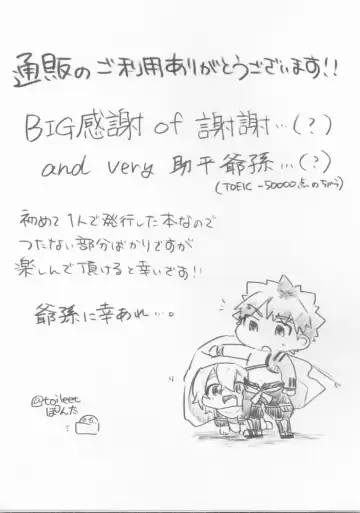 通販のご利用ありがとうございます!!
BIG感謝 of 謝謝…(?)
and very 助平爺孫…(?)
(TOEIC -50000点のちゃう)
初めて1人で発行した本なので
つたない部分ばかりですが
楽しんで頂けると幸いです!!
爺孫に幸あれ…。
@toileet
ぽんた